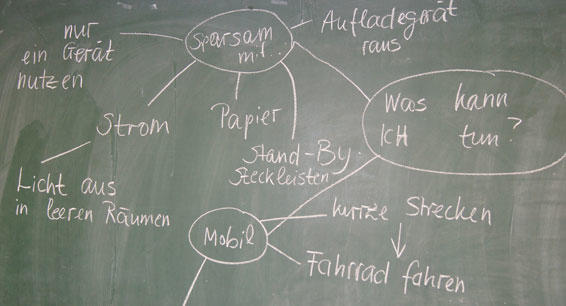 nur
ein Gerät
nutzen
Sparsam
mit...
Aufladegerät
raus
Strom
Papier
Stand-By-
Steckleisten
Was kann
ICH tun?
Licht aus
in leeren Räumen
Mobil
kurze Strecken
Fahrrad fahren